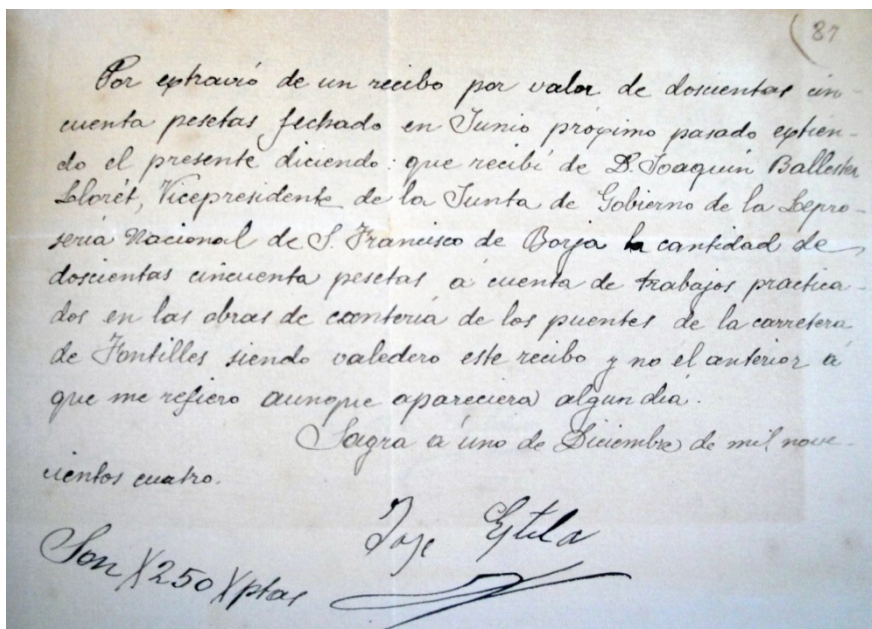 (87
Por extravió de un recibo por valor de doscientas cin-
cuenta pesetas fechado en Junio próximo pasado extien-
do el presente diciendo: que recibí de D. Joaquin Ballester
Lloret, Vicepresidente de la Junta de Gobierno de la Lepro-
seria Nacional de S. Francisco de Borja la cantidad de
doscientas cincuenta pesetas á cuenta de trabajos practica-
dos en las obras de cantería de los puentes de la carretera
de Fontilles siendo valedero este recibo y no el anterior á
que me refiero aunque apareciera algun dia.
Sagra á uno de Diciembre de mil nove-
cientos cuatro.
Jose
Son X250X ptas